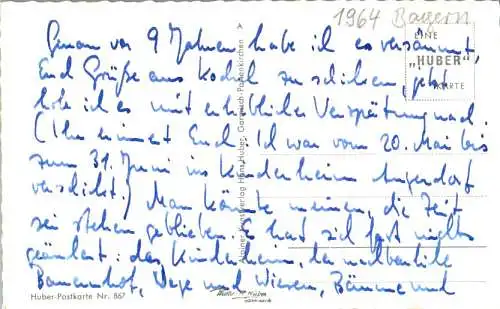 1964 Bayern
EINE
"HUBER"
KARTE
Genau vor 9 Jahren habe ich es versäumt,
Euch Grüße aus Kochel zu schicken, jetzt
hole ich es mit erheblicher Verspätung nach.
(Ihr erinnert Euch: Ich war vom 20. Mai bis
zum 31. Juni ins Kinderheim
verschickt.) Man könnte meinen, die Zeit
sei stehen geblieben. Es hat sich fast nichts
geändert: das Kinderheim, der
Bauernhof, Wege und Wiesen, Bäume und
Huber-Postkarte Nr. 867
Hans Huber, Garmisch-Partenkirchen